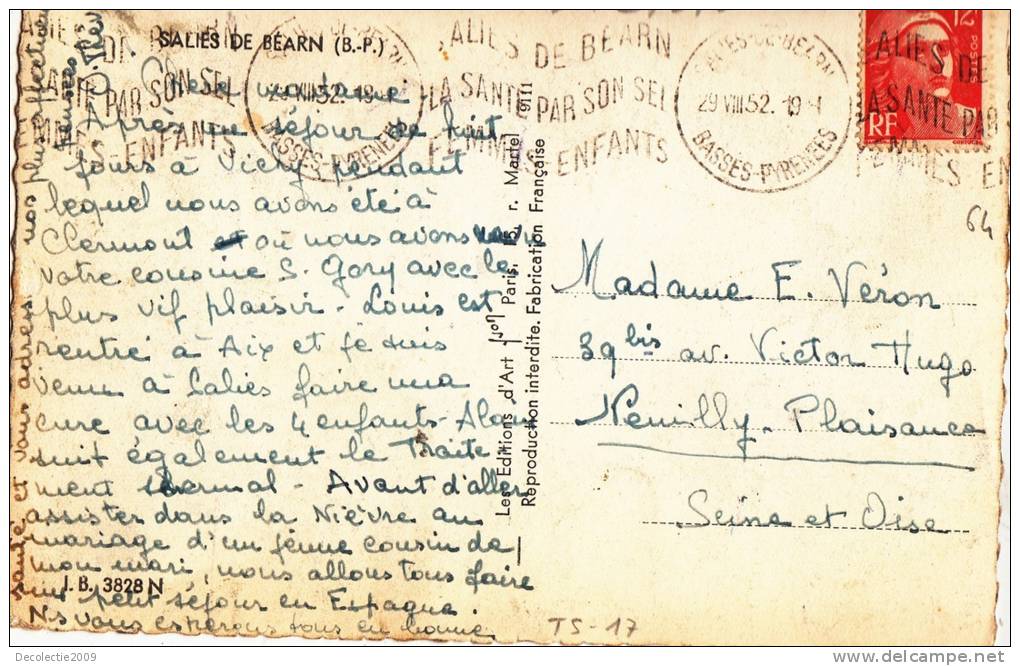 SALIES DE BÉARN (B.-P.)
ALIES DE BÉARN
LA SANTÉ PAR SON SEL
FEMMES-ENFANTS
29 VIII 52. 19-1
BASSES-PYRENEES
12F
POSTES
RF
64
Après un séjour de huit
jours à Vichy pendant
lequel nous avons été à
Clermont où nous avons
votre cousine S. Gory avec le
plus vif plaisir. Louis est
rentré à Aix et je suis
venu à Salies faire ma
cure avec les 4 enfants. Alain
suit également le Traite
ment thermal. Avant d'aller
assister dans la Nièvre au
mariage d'un jeune cousin de
mon mari, nous allons tous faire
un petit séjour en Espagne.
Ns vous espérons tous en bonne
santé et vous adress. nos plus affectueuses
pensées.
Les Editions d'Art Yvon Paris, 15, r. Martel 9111
Reproduction interdite. Fabrication Française
Madame E. Véron
39 bis av. Victor Hugo
Neuilly-Plaisance
Seine et Oise
I. B. 3828 N
TS-17
Decolectie2009
delcampe.net